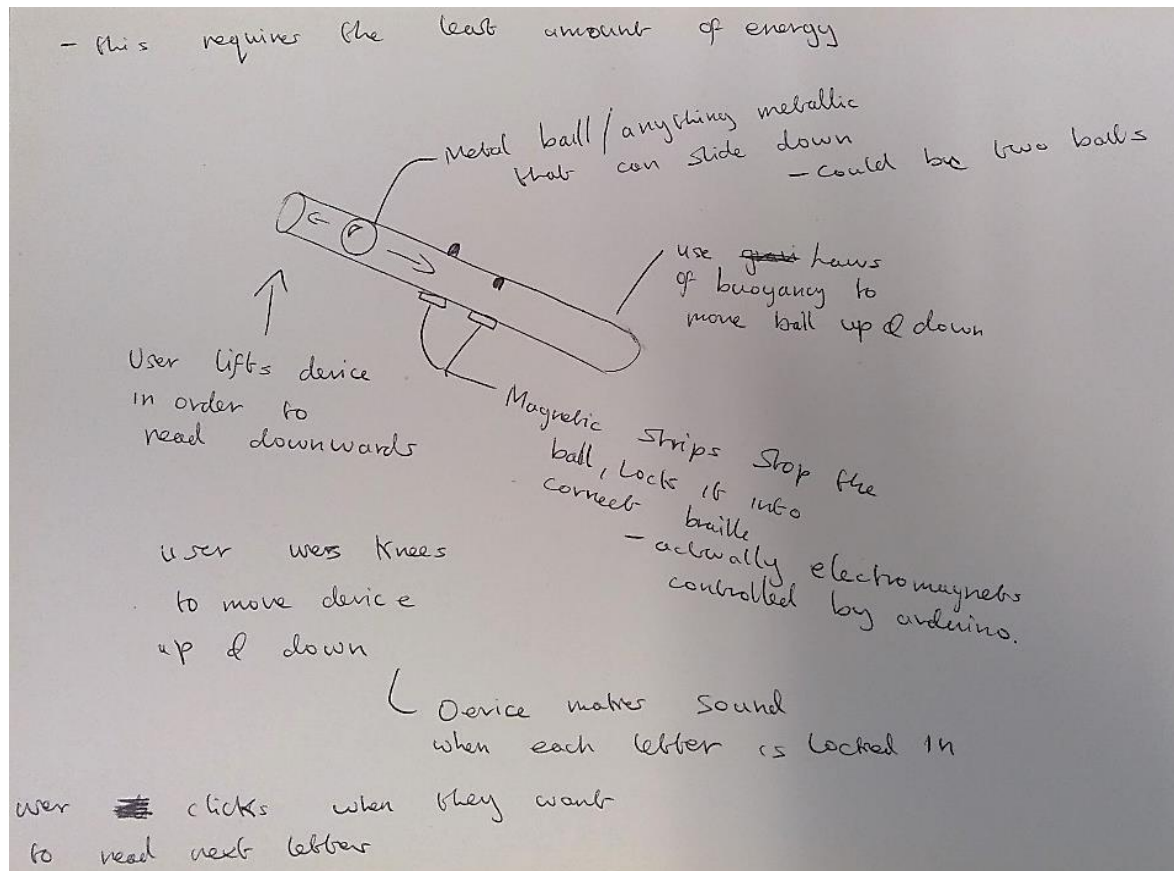 - this requires the least amount of energy
Metal ball / anything metallic
that can slide down
- could be two balls
use laws
of buoyancy to
move ball up & down
User lifts device
in order to
read downwards
Magnetic strips stop the
ball, Locks it into
correct braille
- actually electromagnets
controlled by arduino.
user uses knees
to move device
up & down
Device makes sound
when each letter is locked in
user clicks when they want
to read next letter